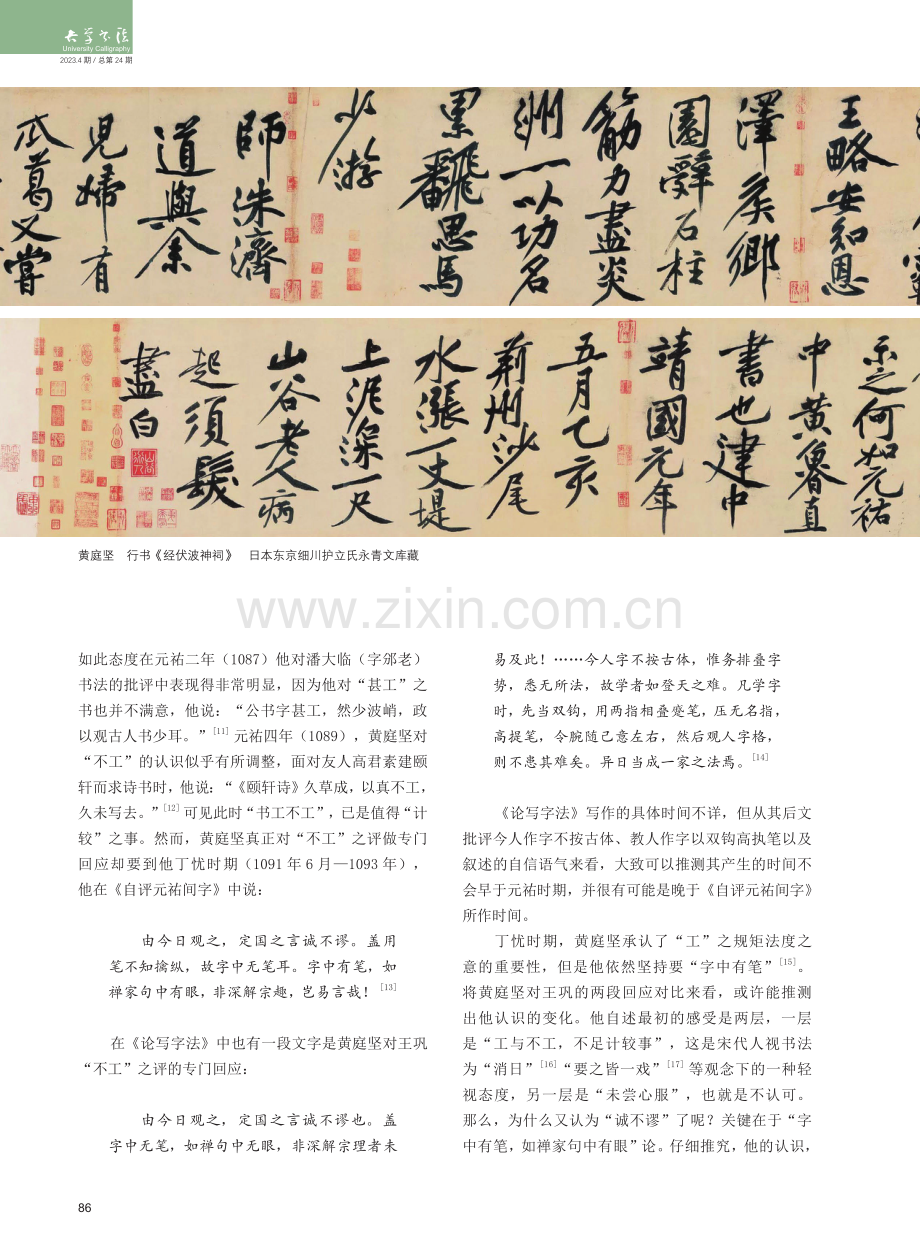 大学书法
University Calligraphy
2023.4 期 / 总第 24 期
王略安知恩
澤矦鄉
園辭石柱
筋力盡炎
洲一以功名
累翻思馬
少游
師洙濟
道與余
兒婦有
瓜葛又嘗
示之何如元祐
中黃魯直
書也建中
靖國元年
五月乙亥
荊州沙尾
水漲一丈堤
上泥深一尺
山谷老人病
起須髮
盡白
黄庭坚　行书《经伏波神祠》　日本东京细川护立氏永青文库藏
www.zixin.com.cn
如此态度在元祐二年（1087）他对潘大临（字邠老）
书法的批评中表现得非常明显，因为他对“甚工”之
书也并不满意，他说：“公书字甚工，然少波峭，政
以观古人书少耳。”[11] 元祐四年（1089），黄庭坚对
“不工”的认识似乎有所调整，面对友人高君素建颐
轩而求诗书时，他说：“《颐轩诗》久草成，以真不工，
久未写去。”[12] 可见此时“书工不工”，已是值得“计
较”之事。然而，黄庭坚真正对“不工”之评做专门
回应却要到他丁忧时期（1091 年 6 月—1093 年），
他在《自评元祐间字》中说：
由今日观之，定国之言诚不谬。盖用
笔不知擒纵，故字中无笔耳。字中有笔，如
禅家句中有眼，非深解宗趣，岂易言哉！[13]
在《论写字法》中也有一段文字是黄庭坚对王巩
“不工”之评的专门回应：
由今日观之，定国之言诚不谬也。盖
字中无笔，如禅句中无眼，非深解宗理者未
易及此！……今人字不按古体，惟务排叠字
势，悉无所法，故学者如登天之难。凡学字
时，先当双钩，用两指相叠蹙笔，压无名指，
高提笔，令腕随己意左右，然后观人字格，
则不患其难矣。异日当成一家之法焉。[14]
《论写字法》写作的具体时间不详，但从其后文
批评今人作字不按古体、教人作字以双钩高执笔以及
叙述的自信语气来看，大致可以推测其产生的时间不
会早于元祐时期，并很有可能是晚于《自评元祐间字》
所作时间。
丁忧时期，黄庭坚承认了“工”之规矩法度之
意的重要性，但是他依然坚持要“字中有笔”[15]。
将黄庭坚对王巩的两段回应对比来看，或许能推测
出他认识的变化。他自述最初的感受是两层，一层
是“工与不工，不足计较事”，这是宋代人视书法
为“消日”[16]“要之皆一戏”[17] 等观念下的一种轻
视态度，另一层是“未尝心服”，也就是不认可。
那么，为什么又认为“诚不谬”了呢？关键在于“字
中有笔，如禅家句中有眼”论。仔细推究，他的认识，
86